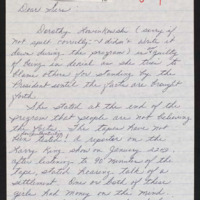 Dear Sirs
Dorothy Kavinoveski (sorry if
not spelt correctly - I didn't write it
down during the program) is guilty
of being in denial in she tries to
blame others for standing by the
President until the facts are brought
forth.
She stated at the end of the
program that people are not believing
the facts. The tapes have not
been tested! A reporter on the
Larry King show on January 20th
after listening to 90 minutes of the
tape, stated hearing talk of a
settlement. One or both of these
girls had money on the mind